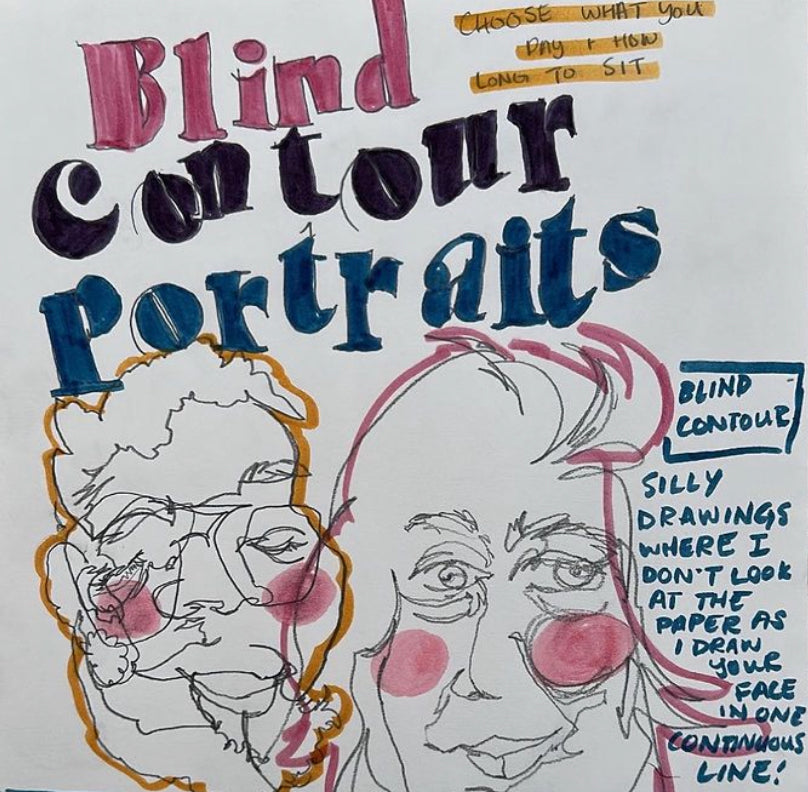 CHOOSE WHAT YOU
PAY + HOW
LONG TO SIT
Blind
Contour
Portraits
BLIND
CONTOUR
SILLY
DRAWINGS
WHERE I
DON'T LOOK
AT THE
PAPER AS
I DRAW
YOUR
FACE
IN ONE
CONTINUOUS
LINE!